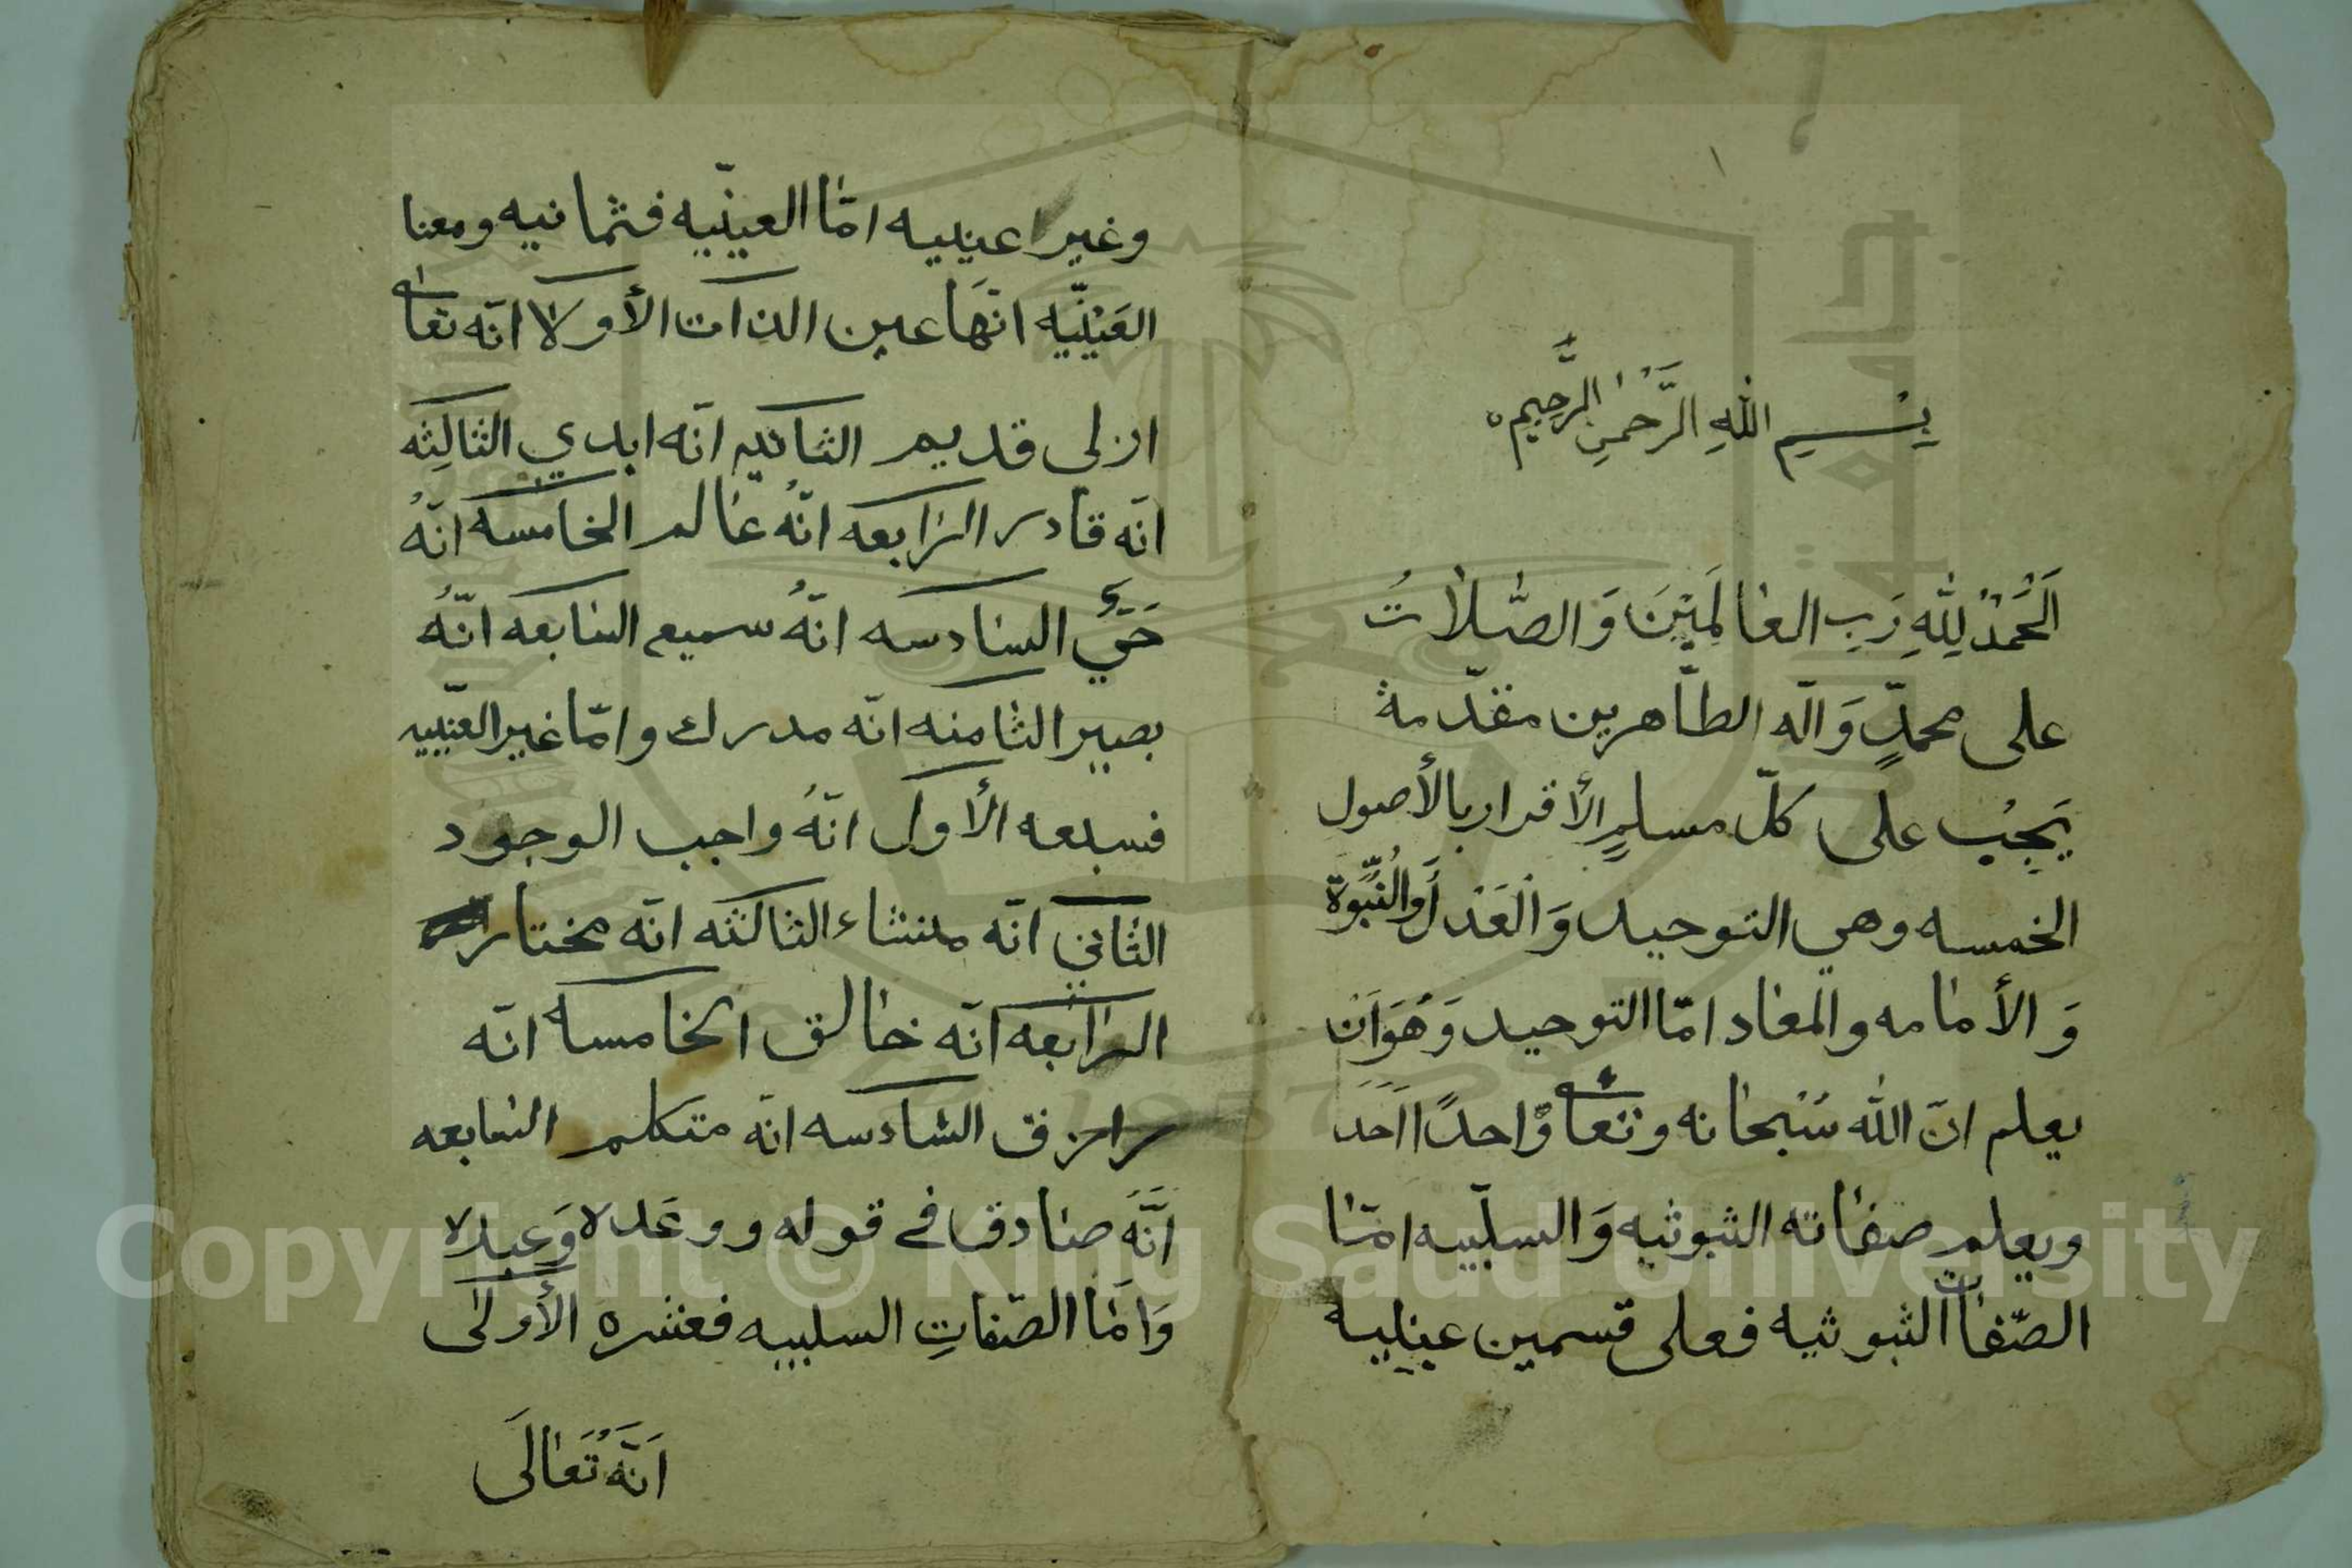 بِسْمِ اللهِ الرَّحمٰنِ الرَّحِيمِ
اَلْحَمْدُ لِلّٰهِ رَبِ العٰالَمِيْنَ وَالصّلاٰتُ
على محمدٍّ وَآله الطّاهرين مقدّمة
يَجِبُ على كلّ مسلمٍ الأقرار بالأصول
الخمسه وهي التوحيد وَالْعَدْل وَالنُّبُوّة
وَ الأمٰامه والمعٰاد امّا التوحيد وَهُوَ اَنْ
يعلم انّ الله سُبْحٰانه وتعٰالى وٰاحدًا اَحَد
ويعلم صفٰاته الثبوثيه وَالسلّبيه امّٰا
الصّفٰات الثبوثيه فعلى قسمين عينييه
وغير عينييه امّا العينيّيه فثمانيه ومعنا
العَيْنيّيه انّهَا عين الذات الأولا انّه تعالى
ازلي قديم الثانيه انّه ابدي الثالِثه
انّه قادر الرٰابعه انّهُ عٰالم الخامسه انّهُ
حَيّ السٰادسه انّهُ سميع السٰابعه انّهُ
بصير الثٰامنه انّه مدرك وامّا غير العينّييه
فسبعه الأول انّهُ واجب الوجود
الثٰاني انّه منشاء الثالثه انّه مختار
الرٰابعه انّه خٰالق الخامسه انّه
رازق السٰادسه انّه متكلم السٰابعه
انَّهُ صٰادق في قوله ووعَده وَعيده
وَامّا الصّفاتِ السلبيه فعشره الأولى
اَنَّهُ تَعٰالَى
Copyright © King Saud University
1957